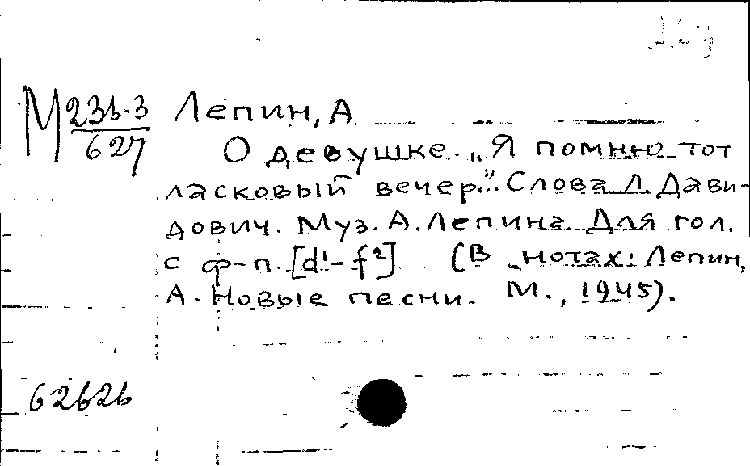 М 236-3 Лепин, А
627
О девушке. „Я помню тот
ласковый вечер.” Слова Л. Дави-
дович. Муз. А. Лепина. Для гол.
с ф-п. [d¹-f²] (В нотах: Лепин,
А. Новые песни. М., 1945).
62626